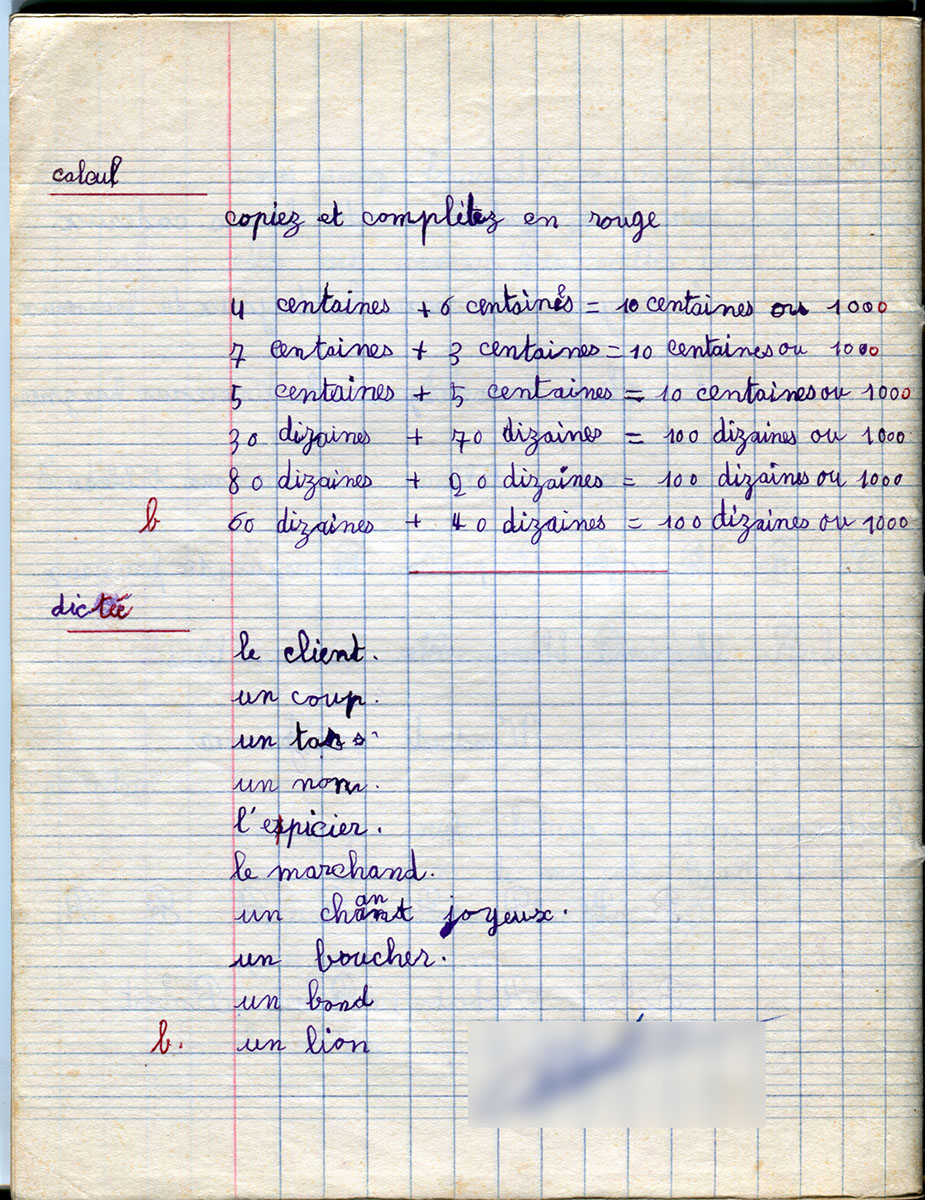 calcul
copiez et complétez en rouge
4 centaines + 6 centaines = 10 centaines ou 1000
7 centaines + 3 centaines = 10 centaines ou 1000
5 centaines + 5 centaines = 10 centaines ou 1000
30 dizaines + 70 dizaines = 100 dizaines ou 1000
80 dizaines + 20 dizaines = 100 dizaines ou 1000
b 60 dizaines + 40 dizaines = 100 dizaines ou 1000
dictée
le client.
un coup.
un
un nom.
l'epicier.
le marchand.
un chant joyeux.
un boucher.
un bond
b. un lion